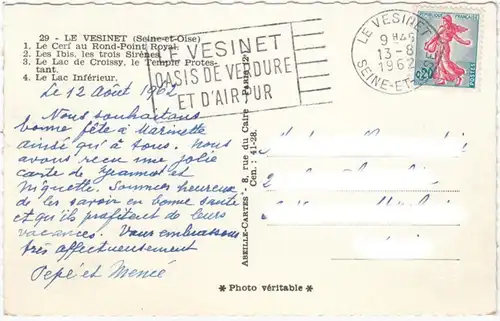 29 - LE VESINET (Seine-et-Oise)
1. Le Cerf au Rond-Point Royal.
2. Les Ibis, les trois Sirènes.
3. Le Lac de Croissy, le Temple Protes-
tant.
4. Le Lac Inférieur.
LE VESINET
OASIS DE VERDURE
ET D'AIR PUR
LE VESINET
9H45
13-8
1962
SEINE-ET-OISE
REPUBLIQUE FRANÇAISE
0,20
POSTES
Le 12 Août 1962
Nous souhaitons
bonne fête à Marinette
ainsi qu'à tous. Nous
avons reçu une jolie
carte de et
Niquette. Sommes heureux
de les savoir en bonne santé
et qu'ils profitent de leurs
vacances. Vous embrassons
très affectueusement
Pépé et Mémé
ABEILLE-CARTES - 8, rue du Caire - Paris (2e)
Cen. : 41-28.
* Photo véritable *